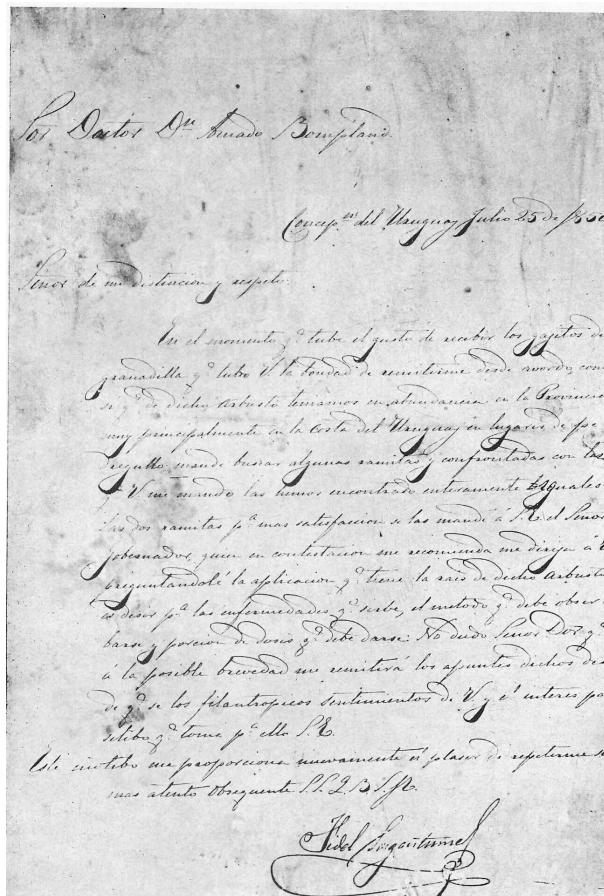 Sor Doctor Dn Amado Bompland.
Concepon del Uruguay Julio 25 de 1850
Señor de mi distincion y respeto.
En el momento qe tube el gusto de recibir los gajitos de
granadilla qe tubo V. la bondad de remitirme desde avordo, cono
si qe de dicho Arbusto teniamos en abundancia en la Provincia
muy principalmente en la Costa del Uruguay en lugares de pe
regullo, mande buscar algunas ramitas y confrontadas con las
qe V me mando las hemos encontrado enteramente Iguales
las dos ramitas pa mas satisfaccion se las mandé á S.E. el Señor
gobernador, quien en contestacion me recomienda me dirija á V
preguntandolé la aplicacion qe tiene la rais de dicho Arbusto
es desir pa las enfermedades qe sirbe, el metodo qe debe obser
barse y porcion de dosis qe debe darse. No dudo Señor Dor qe
á la posible brevedad me remitirá los apuntes dichos des
de qe se los filantropicos sentimientos de V. y el interes po
sitibo qe toma pa ello S.E.
Este motibo me proporciona nuevamente el plaser de repetirme su
mas atento obsequente S.S.Q.B.S.M.
Fidel